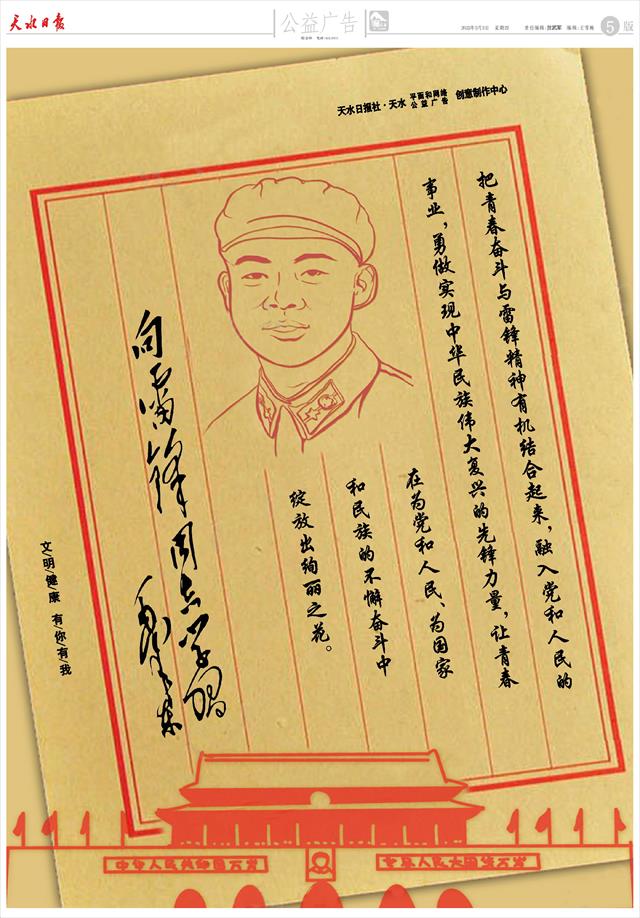 天水日报
公益广告
2022年3月3日 星期四
责任编辑:汪武军 编辑:王雪梅
5版
天水日报社·天水平面和网络公益广告创意制作中心
把青春奋斗与雷锋精神有机结合起来,融入党和人民的
事业,勇做实现中华民族伟大复兴的先锋力量,让青春
在为党和人民、为国家
和民族的不懈奋斗中
绽放出绚丽之花。
向雷锋同志学习
毛泽东
文/明/健/康 有/你/有/我
中华人民共和国万岁